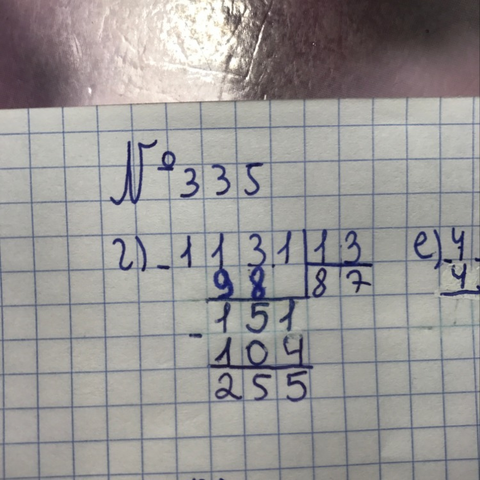 № 335
г) - 1131 | 13 е) 4
98 | 87 4
151
- 104
255